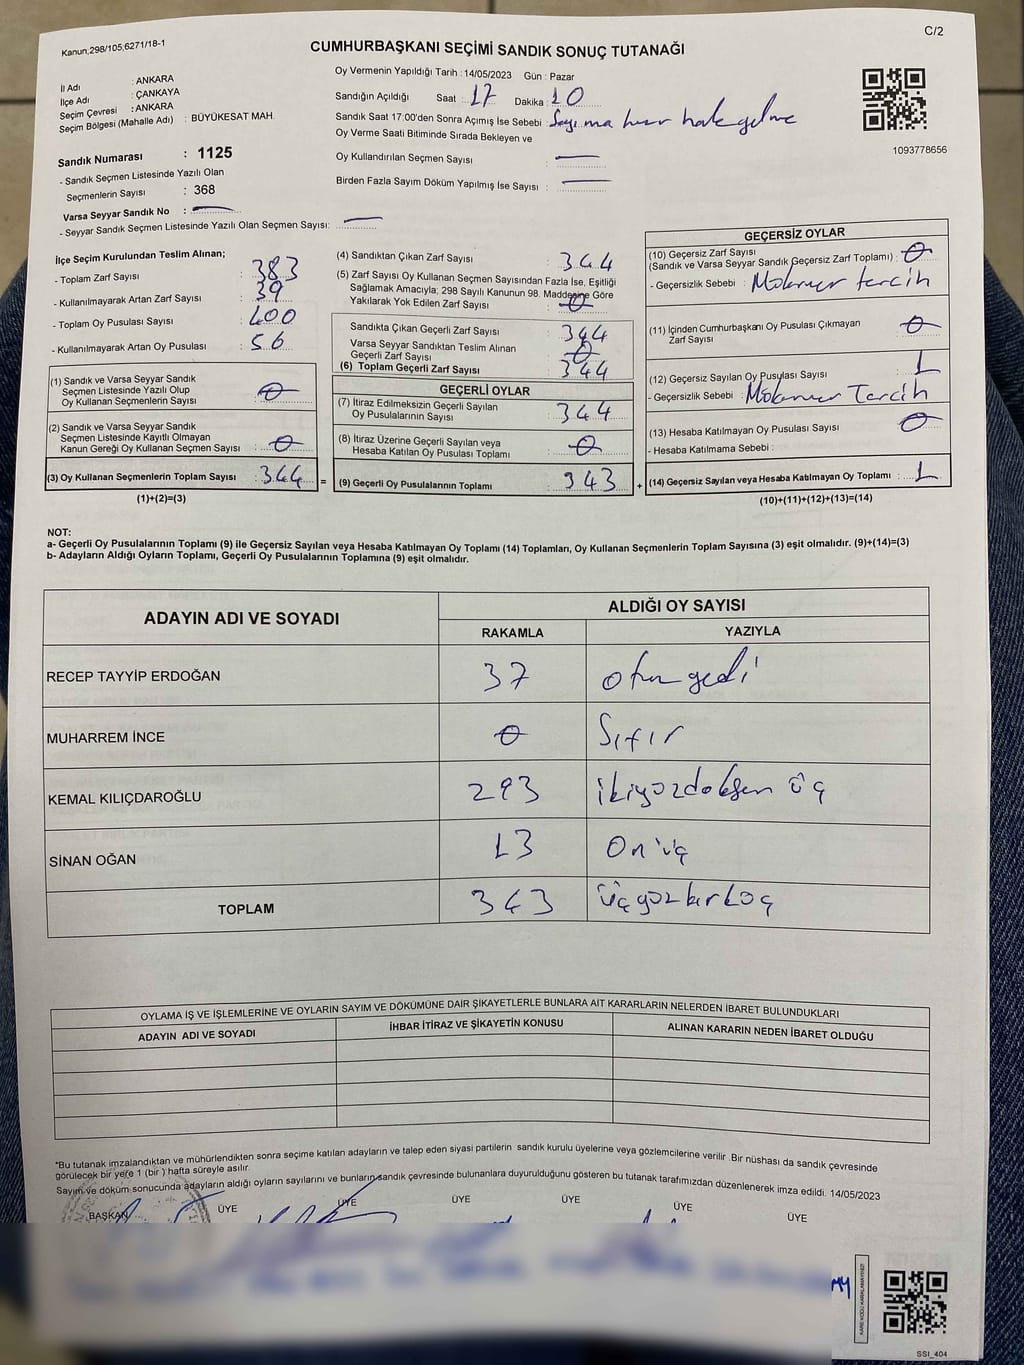 Kanun;298/105;6271/18-1
C/2
CUMHURBAŞKANI SEÇİMİ SANDIK SONUÇ TUTANAĞI
İl Adı : ANKARA
İlçe Adı : ÇANKAYA
Seçim Çevresi : ANKARA
Seçim Bölgesi (Mahalle Adı) : BÜYÜKESAT MAH.
Sandık Numarası : 1125
- Sandık Seçmen Listesinde Yazılı Olan
Seçmenlerin Sayısı : 368
Varsa Seyyar Sandık No : —
- Seyyar Sandık Seçmen Listesinde Yazılı Olan Seçmen Sayısı: —
Oy Vermenin Yapıldığı Tarih : 14/05/2023 Gün : Pazar
Sandığın Açıldığı Saat : 17 Dakika : 10
Sandık Saat 17:00'den Sonra Açımış İse Sebebi : Sayıma hazır hale gelme
Oy Verme Saati Bitiminde Sırada Bekleyen ve
Oy Kullandırılan Seçmen Sayısı : —
Birden Fazla Sayım Döküm Yapılmış İse Sayısı : —
1093778656
İlçe Seçim Kurulundan Teslim Alınan;
- Toplam Zarf Sayısı : 383
- Kullanılmayarak Artan Zarf Sayısı : 39
- Toplam Oy Pusulası Sayısı : 400
- Kullanılmayarak Artan Oy Pusulası : 56
(1) Sandık ve Varsa Seyyar Sandık
Seçmen Listesinde Yazılı Olup
Oy Kullanan Seçmenlerin Sayısı : 0
(2) Sandık ve Varsa Seyyar Sandık
Seçmen Listesinde Kayıtlı Olmayan
Kanun Gereği Oy Kullanan Seçmen Sayısı : 0
(3) Oy Kullanan Seçmenlerin Toplam Sayısı : 344
(1)+(2)=(3)
=
(4) Sandıktan Çıkan Zarf Sayısı : 344
(5) Zarf Sayısı Oy Kullanan Seçmen Sayısından Fazla İse, Eşitliği
Sağlamak Amacıyla; 298 Sayılı Kanunun 98. Maddesine Göre
Yakılarak Yok Edilen Zarf Sayısı : 0
Sandıkta Çıkan Geçerli Zarf Sayısı : 344
Varsa Seyyar Sandıktan Teslim Alınan
Geçerli Zarf Sayısı : 0
(6) Toplam Geçerli Zarf Sayısı : 344
GEÇERLİ OYLAR
(7) İtiraz Edilmeksizin Geçerli Sayılan
Oy Pusulalarının Sayısı : 344
(8) İtiraz Üzerine Geçerli Sayılan veya
Hesaba Katılan Oy Pusulası Toplamı : 0
(9) Geçerli Oy Pusulalarının Toplamı : 343
+
GEÇERSİZ OYLAR
(10) Geçersiz Zarf Sayısı
(Sandık ve Varsa Seyyar Sandık Geçersiz Zarf Toplamı) : 0
- Geçersizlik Sebebi : Mükerrer tercih
(11) İçinden Cumhurbaşkanı Oy Pusulası Çıkmayan
Zarf Sayısı : 0
(12) Geçersiz Sayılan Oy Pusulası Sayısı : 1
- Geçersizlik Sebebi : Mükerrer Tercih
(13) Hesaba Katılmayan Oy Pusulası Sayısı : 0
- Hesaba Katılmama Sebebi :
(14) Geçersiz Sayılan veya Hesaba Katılmayan Oy Toplamı : 1
(10)+(11)+(12)+(13)=(14)
NOT:
a- Geçerli Oy Pusulalarının Toplamı (9) ile Geçersiz Sayılan veya Hesaba Katılmayan Oy Toplamı (14) Toplamları, Oy Kullanan Seçmenlerin Toplam Sayısına (3) eşit olmalıdır. (9)+(14)=(3)
b- Adayların Aldığı Oyların Toplamı, Geçerli Oy Pusulalarının Toplamına (9) eşit olmalıdır.
ADAYIN ADI VE SOYADI ALDIĞI OY SAYISI
RAKAMLA YAZIYLA
RECEP TAYYİP ERDOĞAN 37 otuzyedi
MUHARREM İNCE 0 Sıfır
KEMAL KILIÇDAROĞLU 293 ikiyüzdoksan üç
SİNAN OĞAN 13 On üç
TOPLAM 343 üçyüzkırküç
OYLAMA İŞ VE İŞLEMLERİNE VE OYLARIN SAYIM VE DÖKÜMÜNE DAİR ŞİKAYETLERLE BUNLARA AİT KARARLARIN NELERDEN İBARET BULUNDUKLARI
ADAYIN ADI VE SOYADI İHBAR İTİRAZ VE ŞİKAYETİN KONUSU ALINAN KARARIN NEDEN İBARET OLDUĞU
*Bu tutanak imzalandıktan ve mühürlendikten sonra seçime katılan adayların ve talep eden siyasi partilerin sandık kurulu üyelerine veya gözlemcilerine verilir .Bir nüshası da sandık çevresinde
görülecek bir yere 1 (bir ) hafta süreyle asılır.
Sayım ve döküm sonucunda adayların aldığı oyların sayılarını ve bunların sandık çevresinde bulunanlara duyurulduğunu gösteren bu tutanak tarafımızdan düzenlenerek imza edildi. 14/05/2023
BAŞKAN ÜYE ÜYE ÜYE ÜYE ÜYE ÜYE
KARE KODU KARALAMAYINIZ!
SSI_404